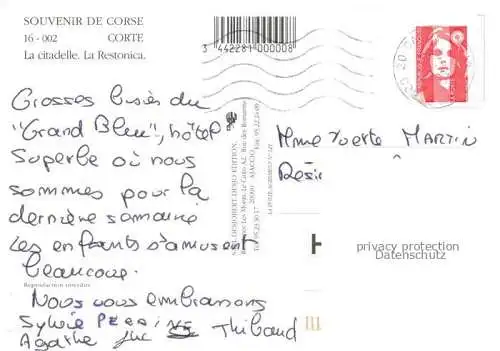 SOUVENIR DE CORSE
16 - 002 CORTE
La citadelle. La Restonica.
3 442281 000008
Grosses bisés du
"Grand Bleu", hôtel
Superbe où nous
sommes pour la
dernière semaine
Les enfants s'amusent
beaucoup.
Nous vous embrassons
Sylvie
Agathe Luc Thibaud
Reproduction interdite
Mme Yvette MARTIN
privacy protection
Datenschutz